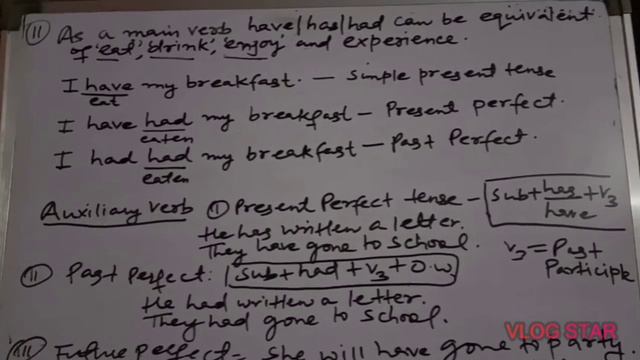 (11) As a main verb have/has/had can be equivalent
of 'eat', 'drink', 'enjoy' and experience.
I have my breakfast. — Simple present tense
eat
I have had my breakfast — Present perfect.
eaten
I had had my breakfast — Past Perfect.
eaten
Auxiliary verb (1) Present Perfect tense — Sub + has/have + V3
He has written a letter.
They have gone to School.
V3 = Past Participle
(11) Past Perfect: Sub + had + V3 + O.w.
He had written a letter.
They had gone to School.
(111) Future perfect - She will have gone to party
VLOG STAR